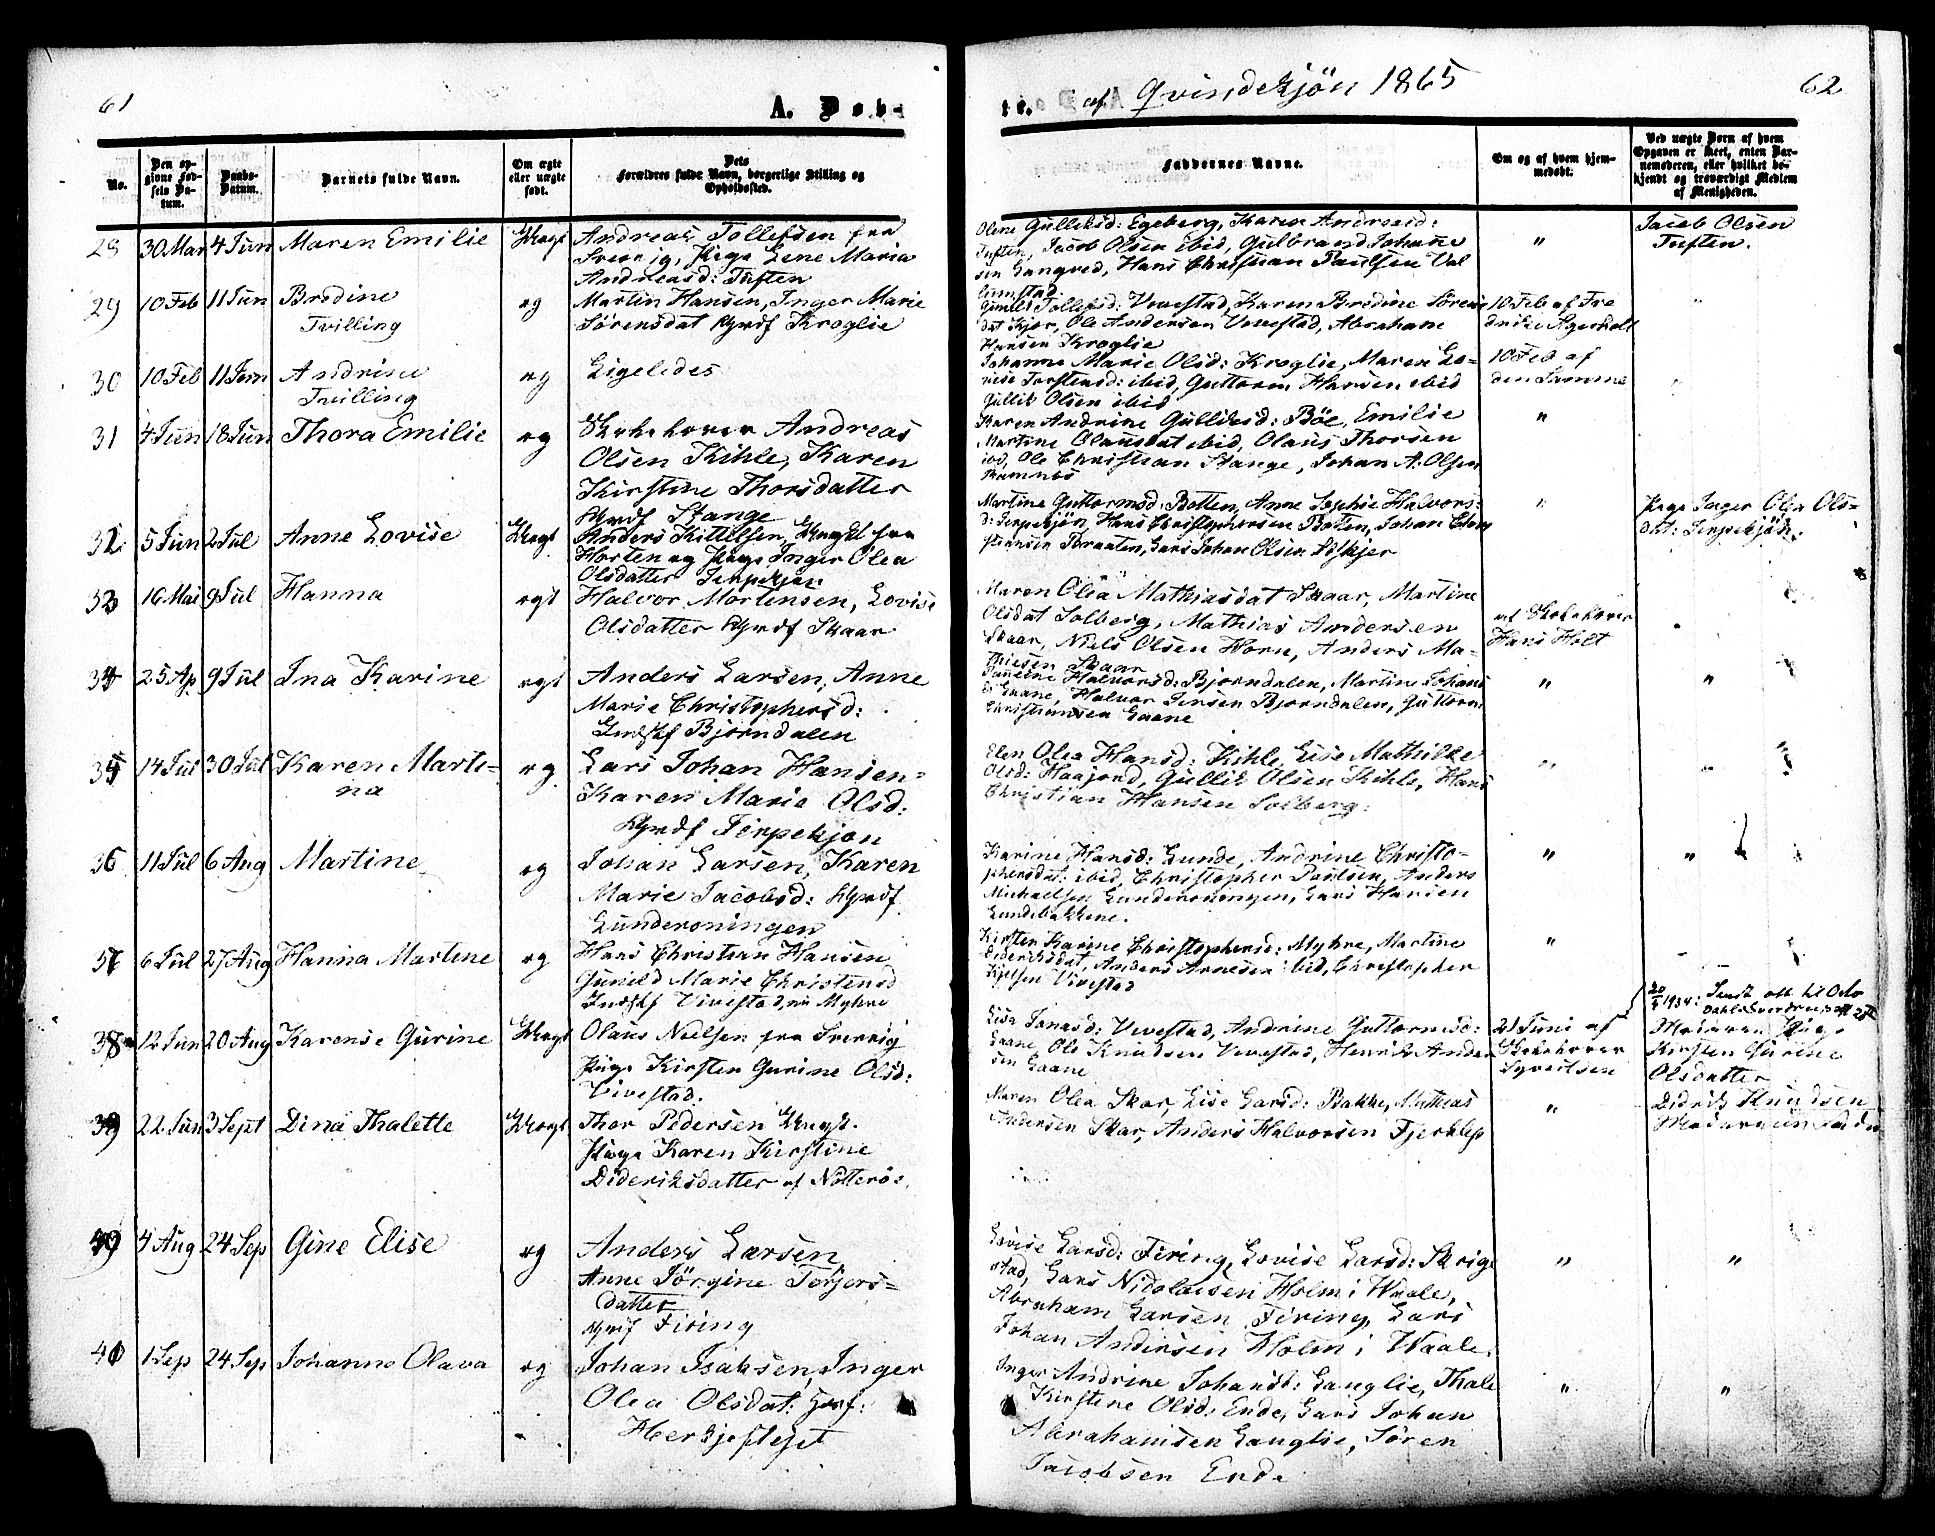 61
A. Døbte
No.
Den opgivne Fødsels Datum.
Daabs-Datum.
Barnets fulde Navn.
Om ægte eller uægte født.
Dets Forældres fulde Navn, borgerlige Stilling og Opholdssted.
28 30 Mar 4 Jun Maren Emilie Uægt Andreas Tollefsen fra
Sverrig, Pige Lene Maria
Andreasd: Tuften
29 10 Feb 11 Jun Bredine æg Martin Hansen, Inger Marie
Tvilling Sörensdat Kroglie
30 10 Feb 11 Jun Andrine æg Ligeledes
Tvilling
31 4 Jun 18 Jun Thora Emilie æg Andreas
Olsen Kihle, Karen
Kirstine Thorsdatter
Stange
32 5 Jun 2 Jul Anne Lovise Uægt Anders Kittelsen, Ungkl fra
Horten og Pige Inger Olea
Olsdatter
33 16 Mai 9 Jul Hanna ægt Halvor Mortensen, Lovise
Olsdatter Skaar
34 25 Ap 9 Jul Ina Karine ægt Anders Larsen, Anne
Marie Christophersd:
Bjorndalen
35 14 Jul 30 Jul Karen Marti- æg Lars Johan Hansen
na Karen Marie Olsd:
36 11 Jul 6 Aug Martine æg Johan Larsen, Karen
Marie Jacobsd:
Lunderoningen
37 6 Jul 27 Aug Hanna Martine æg Hans Christian Hansen
Gunild Marie Christensd
Vivestad, nu Myhre
38 12 Jun 20 Aug Karense Gurine Uægt Olaus Neelsen fra Sverrig
Pige Kirsten Gurine Olsd:
Vivestad.
39 22 Jun 3 Sept Dina Thalette Uægt Thor Pedersen Ungk.
Pige Karen Kirstine
Dideriksdatter af Nötterö.
40 4 Aug 24 Sep Gine Elise æg Anders Larsen
Anne Jörgine Torjers-
datter
Firing
41 1 Sep 24 Sep Johanne Olava æg Johan Isaksen, Inger
Olea Olsdat:
af Qvindekjön 1865
62
Faddernes Navne.
Om og af hvem hjemmedøbt.
Ved uægte Børn af hvem Opgaven er skeet, enten Barnemoderen, eller hvilket bekjendt og troværdigt Medlem af Menigheden.
Olene Gulliksd: Egeberg, Karen Andreasd: Jacob Olsen
Tuften, Jacob Olsen ibid, Gulbrand Johanne " Tuften.
sen Langved, Hans Christian Paulsen Val
lumstad.
Gunild Tollefsd: Vivestad, Karen Bredine Sörens 10 Feb af Fre
dat Kjær, Ole Andersen Vivestad, Abraham drikke Agerholt
Hansen Kroglie
Johanne Marie Olsd: Kroglie, Maren Lo- 10 Feb af
vise Torstensd: ibid, Guttorm Hansen ibid den Samme "
Gullik Olsen ibid
Karen Andrine Gulliksd: Böe, Emilie "
Martine Olausdat ibid, Olaus Thorsen
ibd, Ole Christian Stange, Johan A. Olsen
Ramnes
Martine Guttormsd: Botten, Anne Sophie Halvors- " Pige Inger Olea Ols-
d: Hans Christophersen Botten, Johan Chri
stiansen Braaten, Lars Johan Olsen
Maren Olea Mathiasdat Skaar, Martine
Olsdat Solberg, Mathias Andersen af Skoleholder
Skaar, Niels Olsen Horn, Anders Ma- Hans Holt "
thiesen Skaar
Halvorsd: Bjorndalen, Martine Johans
d: Gaane, Halvor Jensen Bjorndalen, Guttorm " "
Christiansen Gaane
Elen Olea Hansd: Kihle, Lise Mathilde
Olsd: Haajord, Gullik Olsen Kihle, Hans " "
Christian Hansen Solberg.
Karine Hansd: Lunde, Andrine Christo-
phersdat: ibid, Christopher Paulsen, Anders " "
Michaelsen Lunderoningen, Lars Hansen
Lundebakkene.
Kirsten Karine Christophersd: Myhre, Martine "
Dideriksdat, Anders Arnesen ibid, Christopher
Kjelsen Vivestad
20/1 1934: Sendt att. til Oslo
Lisa Jonasd: Vivestad, Andrine Guttormsd: 21 Juni af Moderen Pige
Gaane Ole Knudsen Vivestad, Henrik Ander Skoleholder Kirsten Gurine
sen Gaane Syvertsen Olsdatter
Maren Olea Skar, Lise Larsd: Bakke, Mathias " Didrik Knudsen
Andersen Skar, Anders Halvorsen Fjerklep
Lovise Larsd: Firing, Lovise Larsd: Skrige
stad, Lars Nicolaisen Holm i Waale, " "
Abraham Larsen Firing, Lars
Johan Andersen Holm i Waale.
Inger Andrine Johansd: Langlie, Thale
Kirstine Olsd. Ende, Lars Johan " "
Abrahamsen Langlie, Sören
Jacobsen Ende